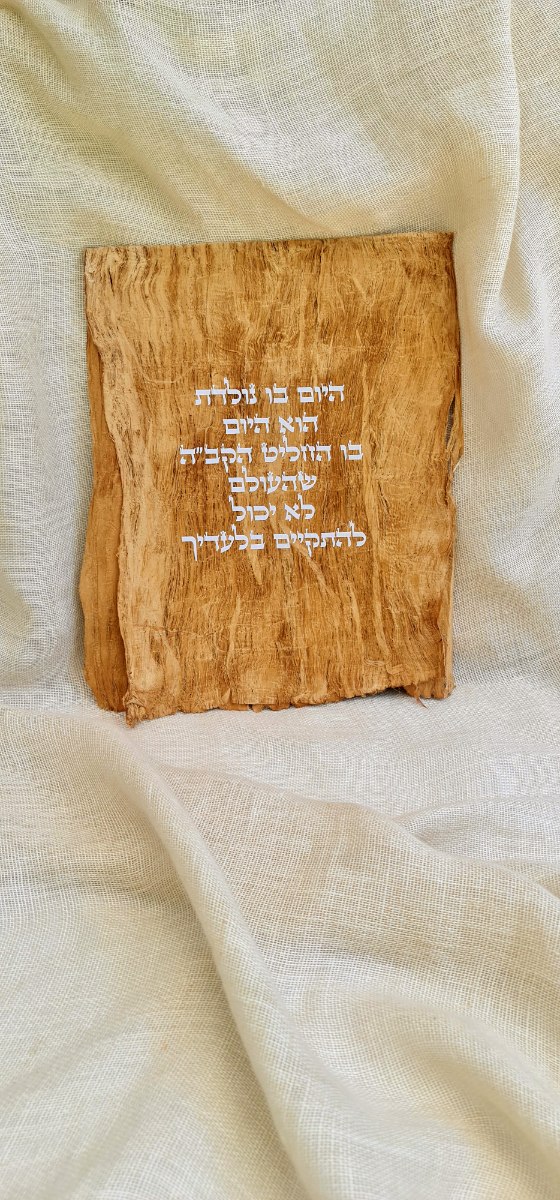 היום בו נולדת
הוא היום
בו החליט הקב״ה
שהעולם
לא יכול
להתקיים בלעדיך